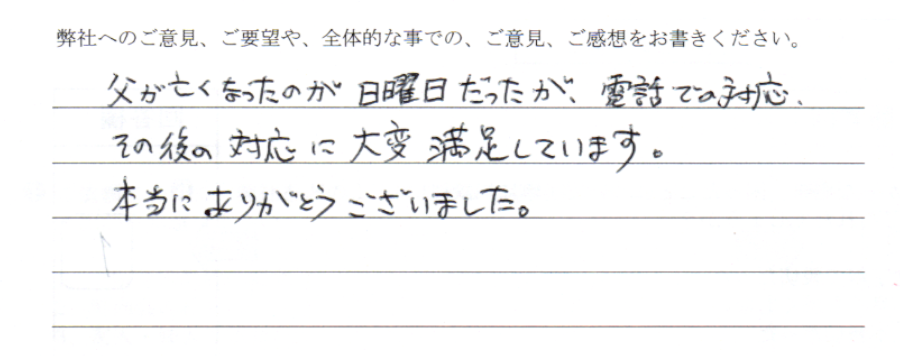 弊社へのご意見、ご要望や、全体的な事での、ご意見、ご感想をお書きください。
父が亡くなったのが日曜日だったが、電話での対応、
その後の対応に大変満足しています。
本当にありがとうございました。